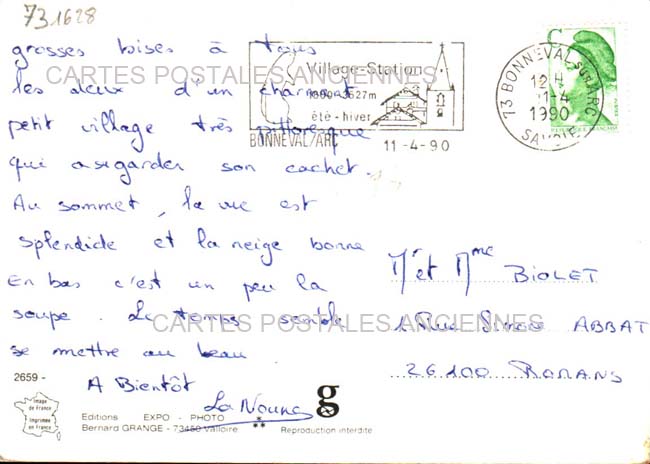 731628
grosses bises à tous
les deux d'un charmant
petit village très pittoresque
qui a su garder son cachet.
Au sommet, la vue est
splendide et la neige bonne
En bas c'est un peu la
soupe. Le temps semble
se mettre au beau
A Bientôt
La Nounou
CARTES POSTALES ANCIENNES
Village-Station
1800-3627m
été-hiver
BONNEVAL/ARC
11-4-90
73 BONNEVAL sur ARC
12 H
11-4
1990
SAVOIE
C
Mr et Mme BIOLET
1 Rue ABBAT
26100 ROMANS
CARTES POSTALES ANCIENNES
2659 -
Image
de France
Imprimée
en France
Editions EXPO - PHOTO
Bernard GRANGE - 73450 Valloire
g
Reproduction interdite